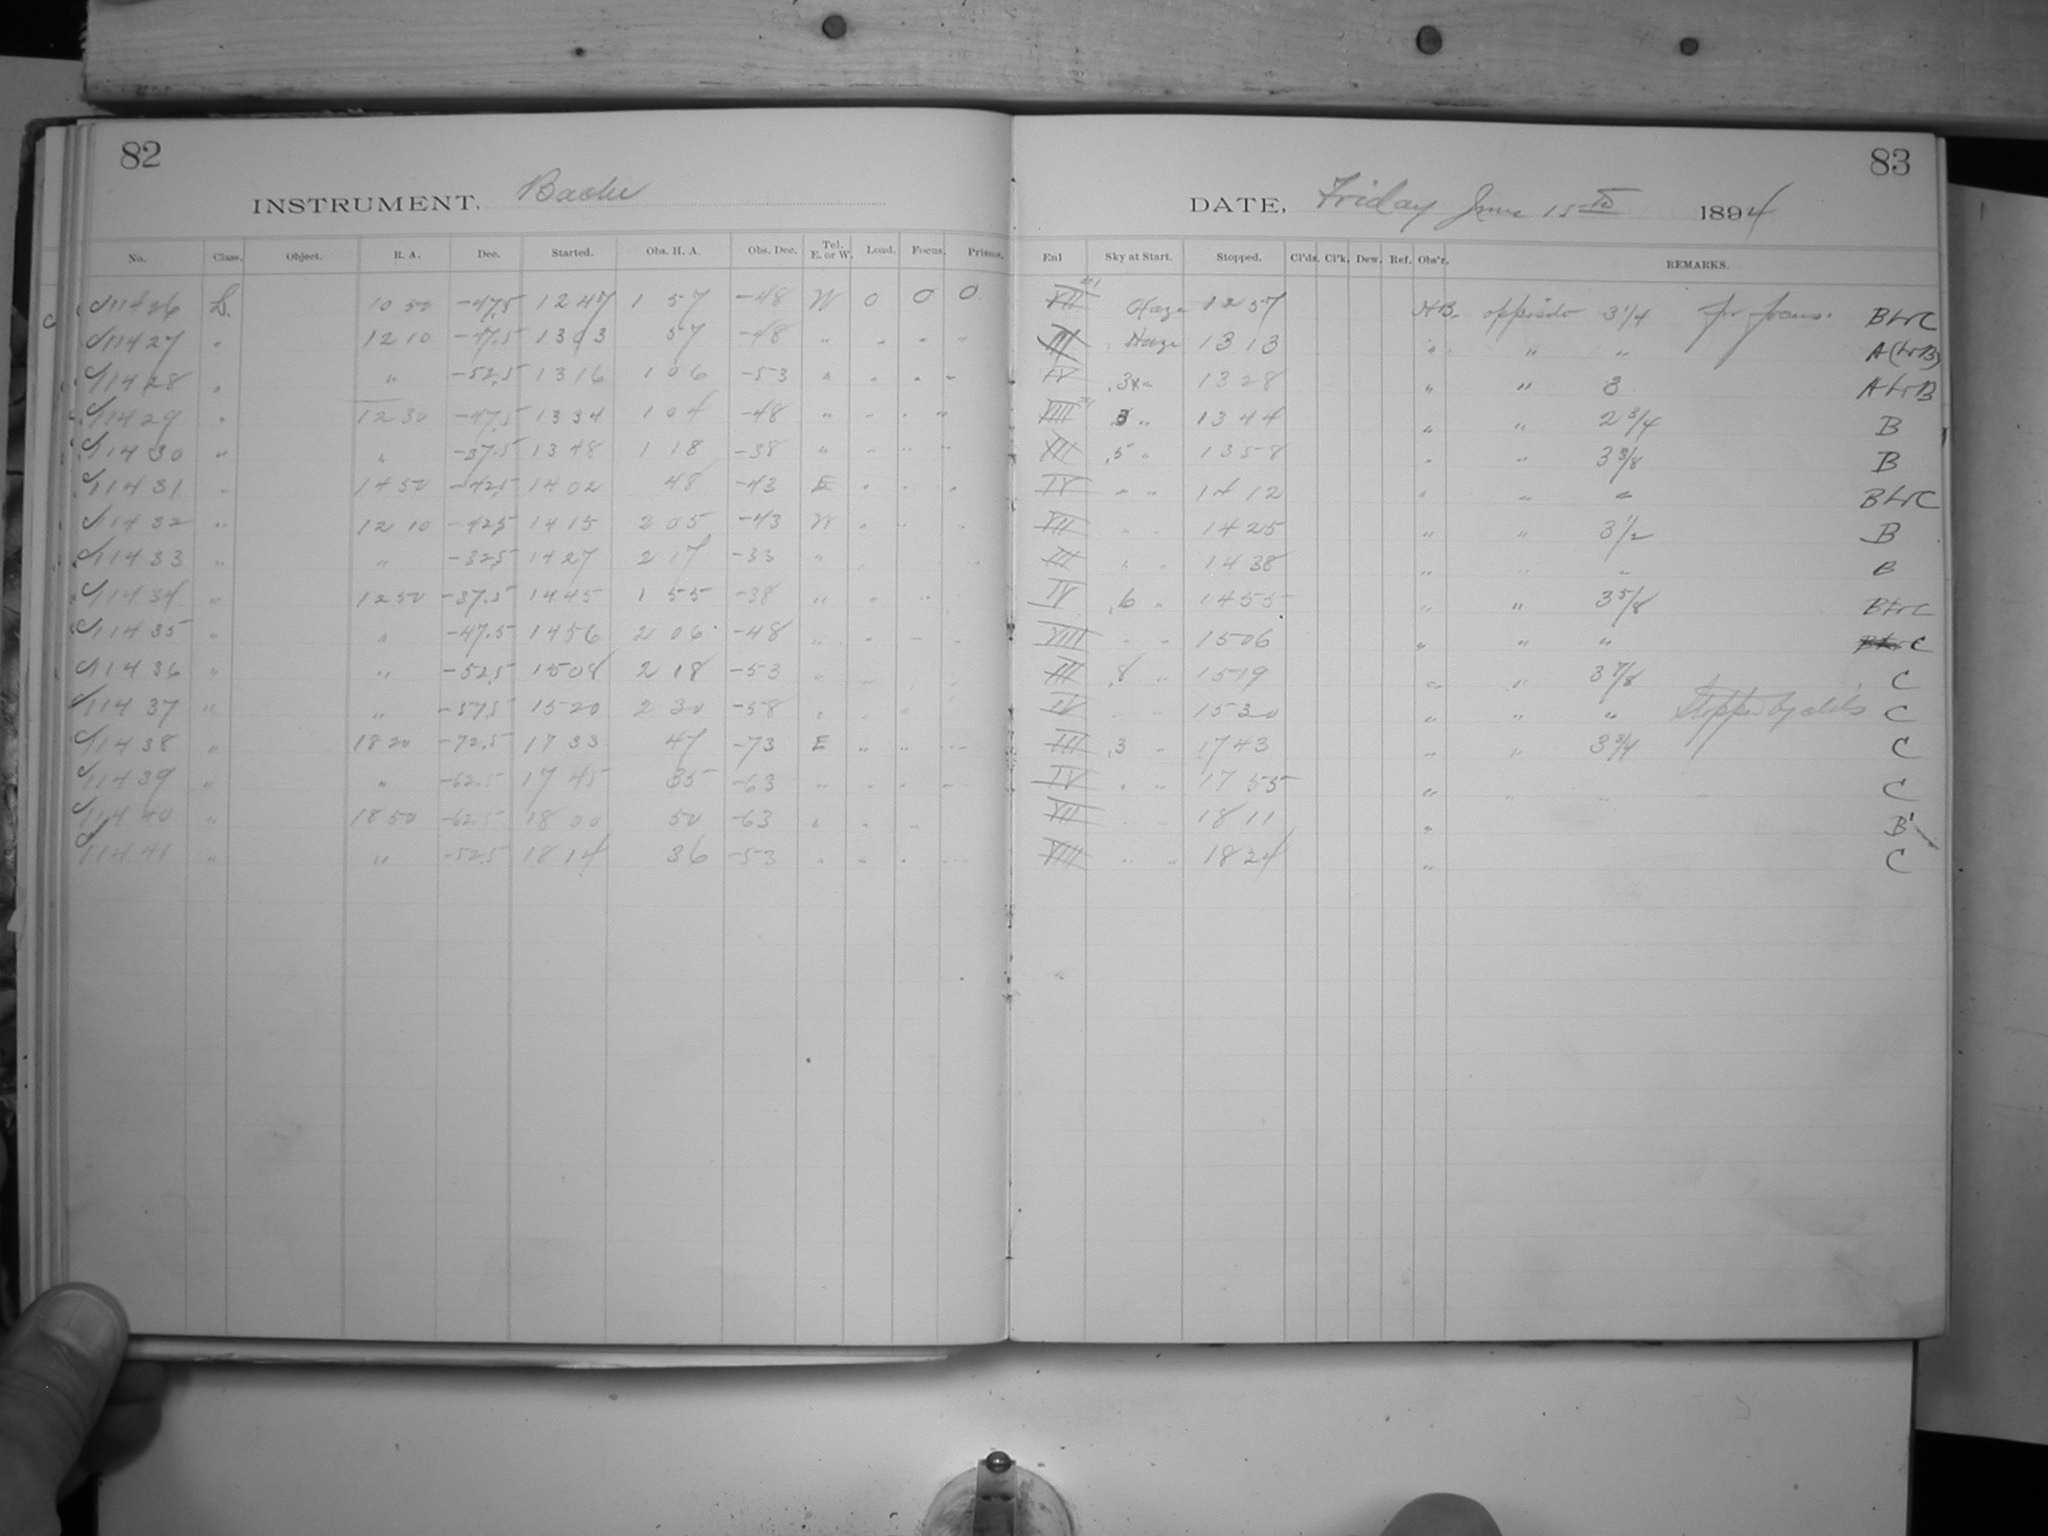 82
INSTRUMENT. Bache
No. Class. Object. R. A. Dec. Started. Obs. H. A. Obs. Dec. Tel. E. or W. Load. Focus. Prisms.
11426 L. 10 50 -47.5 12 47 1 57 -48 W 0 0 0
11427 " 12 10 -47.5 13 03 57 -48 " " " "
11428 " " -52.5 13 16 1 06 -53 " " " "
11429 " 12 30 -47.5 13 34 1 04 -48 " " " "
11430 " " -37.5 13 48 1 18 -38 " " " "
11431 " 14 50 -42.5 14 02 48 -43 E " " "
11432 " 12 10 -42.5 14 15 2 05 -43 W " " "
11433 " " -32.5 14 27 2 17 -33 "
11434 " 12 50 -37.5 14 45 1 55 -38 " " "
11435 " " -47.5 14 56 2 06 -48 " " " "
11436 " " -52.5 15 08 2 18 -53 "
11437 " " -57.5 15 20 2 30 -58 " " "
11438 " 18 20 -72.5 17 33 47 -73 E " " "
11439 " " -62.5 17 45 35 -63 " " " "
11440 " 18 50 -62.5 18 00 50 -63 " " "
11441 " " -52.5 18 14 36 -53 " " " "
83
DATE, Friday June 15th 1894
Enl Sky at Start. Stopped. Cl'ds. Cl'k. Dew. Ref. Obs'r. REMARKS.
VII Haze 12 57 HB. 3 1/4 for focus. B to C
III Haze 13 13 " " " A (to B)
IV .3 " 13 28 " " 3 A to B
VIII .3 " 13 44 " " 2 3/4 B
VII .5 " 13 58 " " 3 3/8 B
IV " " 14 12 " " " B to C
VII " " 14 25 " " 3 1/2 B
III " " 14 38 " " " B
IV .6 " 14 55 " " 3 5/8 B to C
VIII " " 15 06 " " " C
III .8 " 15 19 " " 3 7/8 C
IV " " 15 30 " " " Stopped by clds C
III .3 " 17 43 " " 3 3/4 C
IV " " 17 55 " " " C
VII 18 11 " B
VIII " " 18 24 " C